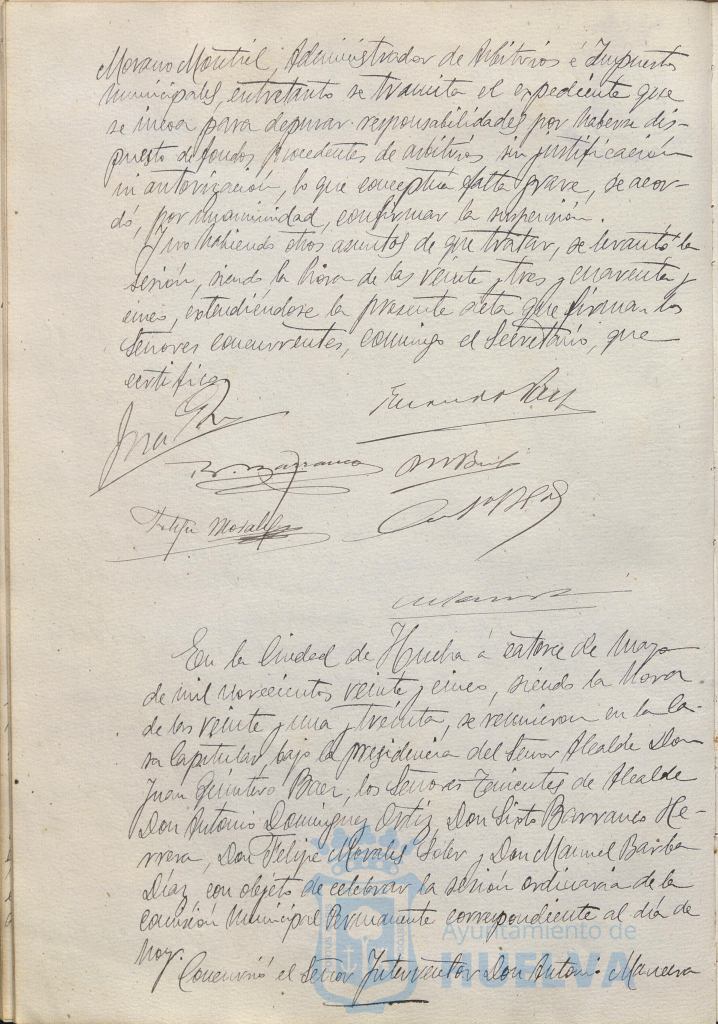 Moreno Montiel, Administrador de Arbitrios é Impuestos
municipales, entretanto se tramita el expediente que
se incoa para depurar responsabilidades por haberse dis-
puesto de fondos procedentes de arbitrios sin justificación
ni autorización, lo que conceptúa falta grave, se acor-
dó, por unanimidad, confirmar la suspensión.
Y no habiendo otros asuntos de que tratar, se levantó la
sesión, siendo la hora de las veinte y tres y cuarenta y
cinco, extendiéndose la presente acta que firman los
Señores concurrentes, conmigo el Secretario, que
certifico
Felipe Morales
En la Ciudad de Huelva á catorce de mayo
de mil novecientos veinte y cinco, siendo la hora
de las veinte y una y treinta, se reunieron en la Ca-
sa Capitular, bajo la presidencia del Señor Alcalde Don
Juan Quintero Baez, los Señores Tenientes de Alcalde
Don Antonio Dominguez Ortiz, Don Sixto Barranco He-
rrera, Don Felipe Morales Soler y Don Manuel Barba
Díaz, con objeto de celebrar la sesión ordinaria de la
Comisión Municipal Permanente correspondiente al día de
hoy.
Concurrió el Señor Interventor Don Antonio
Ayuntamiento de
HUELVA